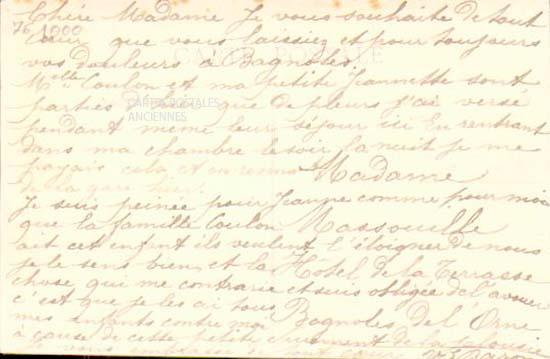 Chère Madame Je vous souhaite de tout
76 1000
cœur que vous laissiez et pour toujours
CARTE POSTALE
vos douleurs à Bagnoles.
Melle Coulon et ma petite Jeannette sont
parties hier que de pleurs j'ai versé
CARTES POSTALES
ANCIENNES
pendant meme leur séjour ici En rentrant
dans ma chambre le soir la nuit je me
payais cela et en
Madame
de la gare hier.
Je suis peinée pour Jeanne comme pour moi
que la famille Coulon
Massouille
ait cet enfant ils veulent l'éloigner de nous
je le sens bien, et la
Hôtel de la Terrasse
chose qui me contrarie et suis obligée de l'avouer
c'est que je les ai tous
Bagnoles de l'Orne
mes enfants contre moi
à cause de cette petite
de tout cœur